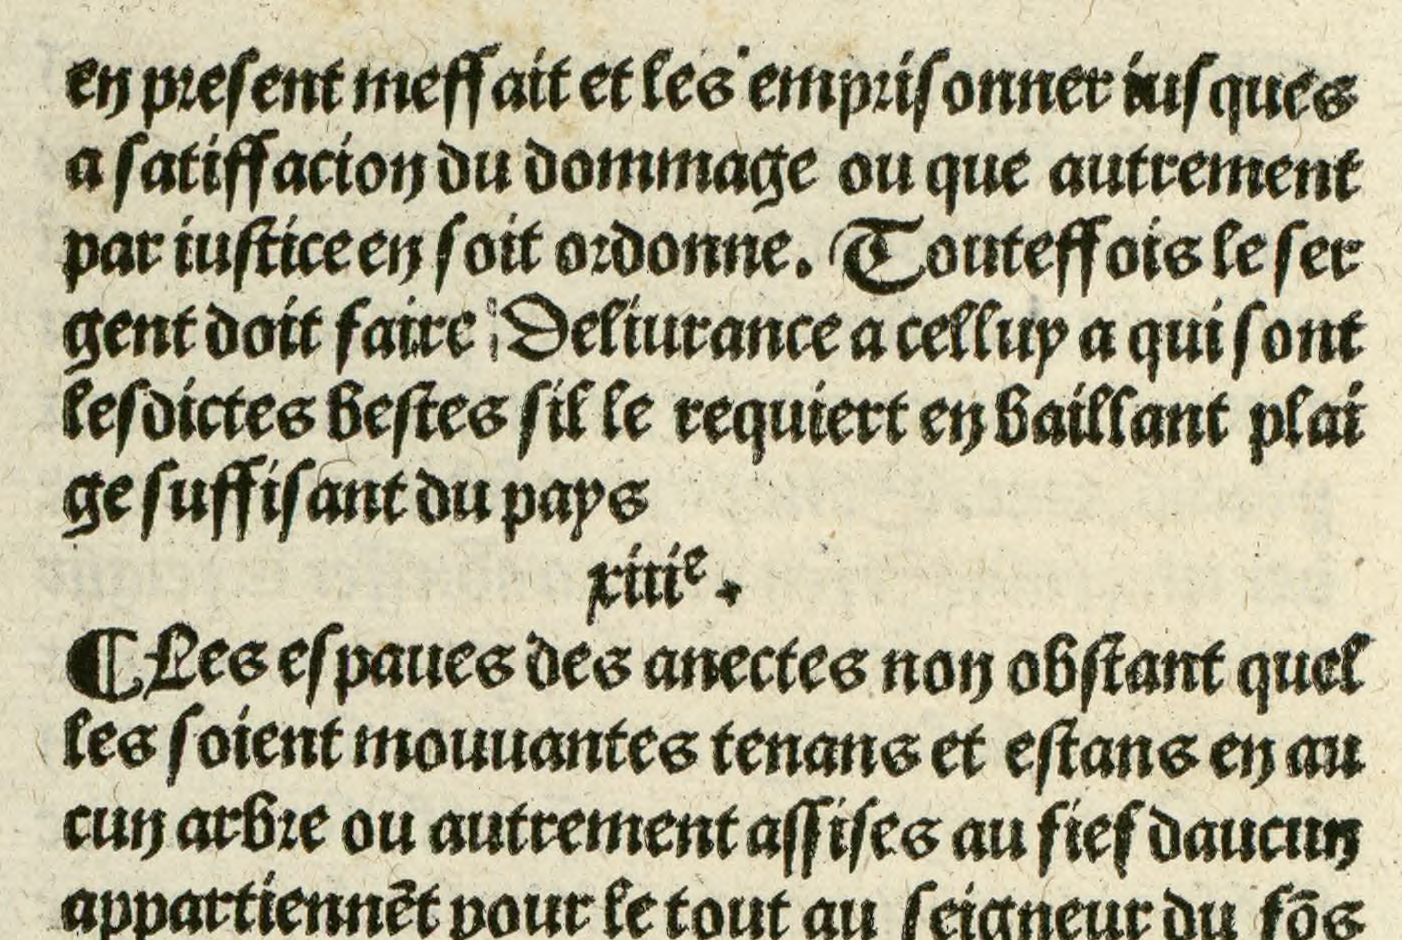 en present meffait et les emprisonner iusques
a satiffacion du dommage ou que autrement
par iustice en soit ordonne. Touteffois le ser
gent doit faire Deliurance a celluy a qui sont
lesdictes bestes sil le requiert en baillant plai
ge suffisant du pays
xiiiᵉ.
¶ Les espaues des anectes non obstant quel
les soient mouuantes tenans et estans en au
cun arbre ou autrement assises au fief daucun
appartiennẽt pour le tout au seigneur du fõs